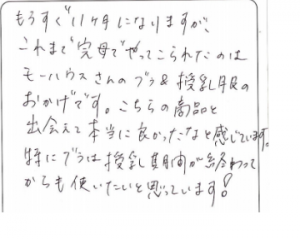 もうすぐ11ヶ月になりますが、
これまで完母でやってこられたのは
モーハウスさんのブラ&授乳服の
おかげです。こちらの商品と
出会えて本当に良かったなと感じています。
特にブラは授乳期間が終わって
からも使いたいと思っています!